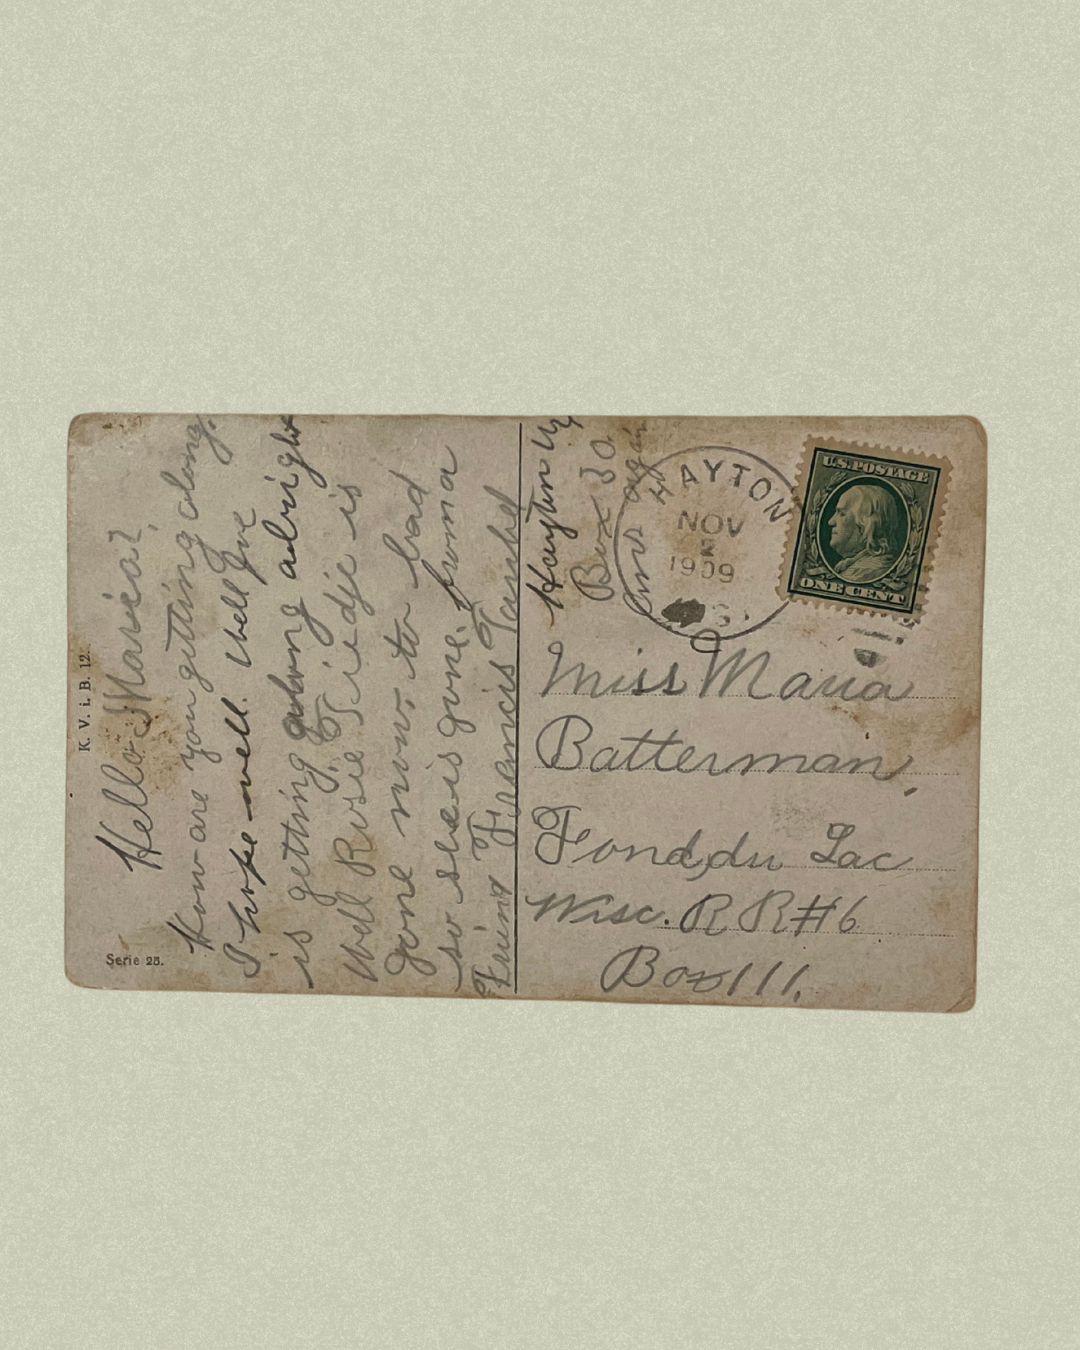 K. V. i. B. 12.
Serie 25.
Hello Maria?
How are you getting along.
I hope well. Well
is getting along alright
Well Rosie Tiedje is
gone now, to bad
so she is gone, from a
Friend Francis
Hayton
Box 30
Ans again
HAYTON
NOV
1909
U.S. POSTAGE
ONE CENT
Miss Maria
Batterman,
Fond du Lac
Wisc. R R #6
Box 111.